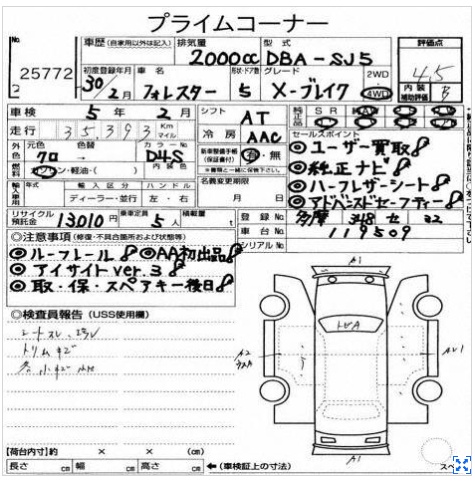 プライムコーナー
No. 車歴 (自家用以外は記入) 排気量 型式 評価点
25772 2000cc DBA-SJ5 4.5
初度登録年月 車名 形状・ドア数 グレード 2WD
30年2月 フォレスター 5 X-ブレイク 4WD 内装補助評価 B
車検 5年2月 シフト AT 純正品 SR
走行 35,393 Km マイル 冷房 AAC セールスポイント
外色 元色 色替 カラーNo. 新車整備手帳(保証書付) 有・無 ◎ユーザー買取
クロ D4S 内装色 ◎純正ナビ
燃料 ガソリン・軽油・( ) 名義変更期限 ◎ハーフレザーシート
輸入車用 年式 輸入区分 ハンドル 月 日 ◎アドバンスドセーフティー
ディーラー・並行 左・右
リサイクル預託金 13010円 乗車定員 5人 積載量 登録No. 多摩 348 せ 32
◎注意事項 (修復・不具合箇所および状態等) 車台No. 119509
◎ルーフレール ◎AA初出品 シリアルNo.
◎アイサイトver.3
◎取・保・スペアキー後日
◎検査員報告 (USS使用欄)
A1
A2
A1
【荷台内寸】約 × × (cm)
長さ cm 幅 cm 高さ cm ←(車検証上の寸法)